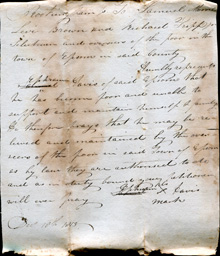 Levi Brown and Richard Tripp
Selectmen and overseers of the poor in the
town of Epsom in said County
Humbly represents
Ephraim Davis of said Epsom that
he has become poor and unable to
support and maintain himself &
therefore prays that he may be re
lieved and maintained by the over
seers of the poor in said town of Epsom
as by law they are authorised to do
and as in duty bound your petitioner
will ever pray
Ephraim X Davis
mark